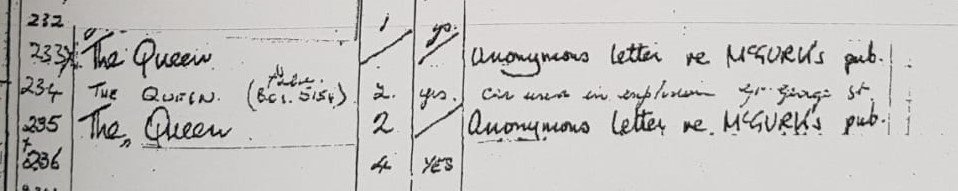 232 1 yes.
233 The Queen Anonymous letter re McGURK's pub.
234 THE QUEEN. (BCI. 5154) 2. yes. Car used in explosion Gt. George St.
235 The Queen 2 Anonymous letter re. McGURK's pub.
236 4 YES